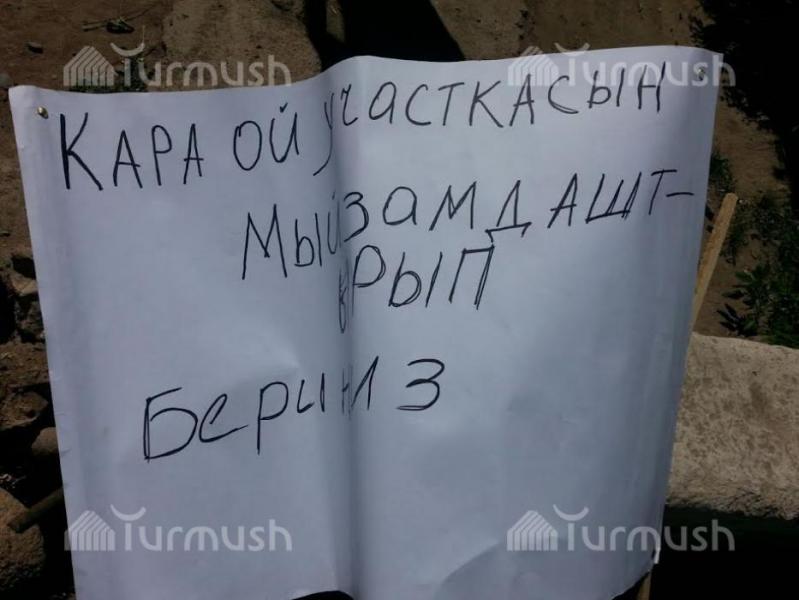 Turmush Turmush
КАРА ОЙ УЧАСТКАСЫН
МЫЙЗАМДАШТ-
ЫРЫП
Бериңиз
Turmush Turmush